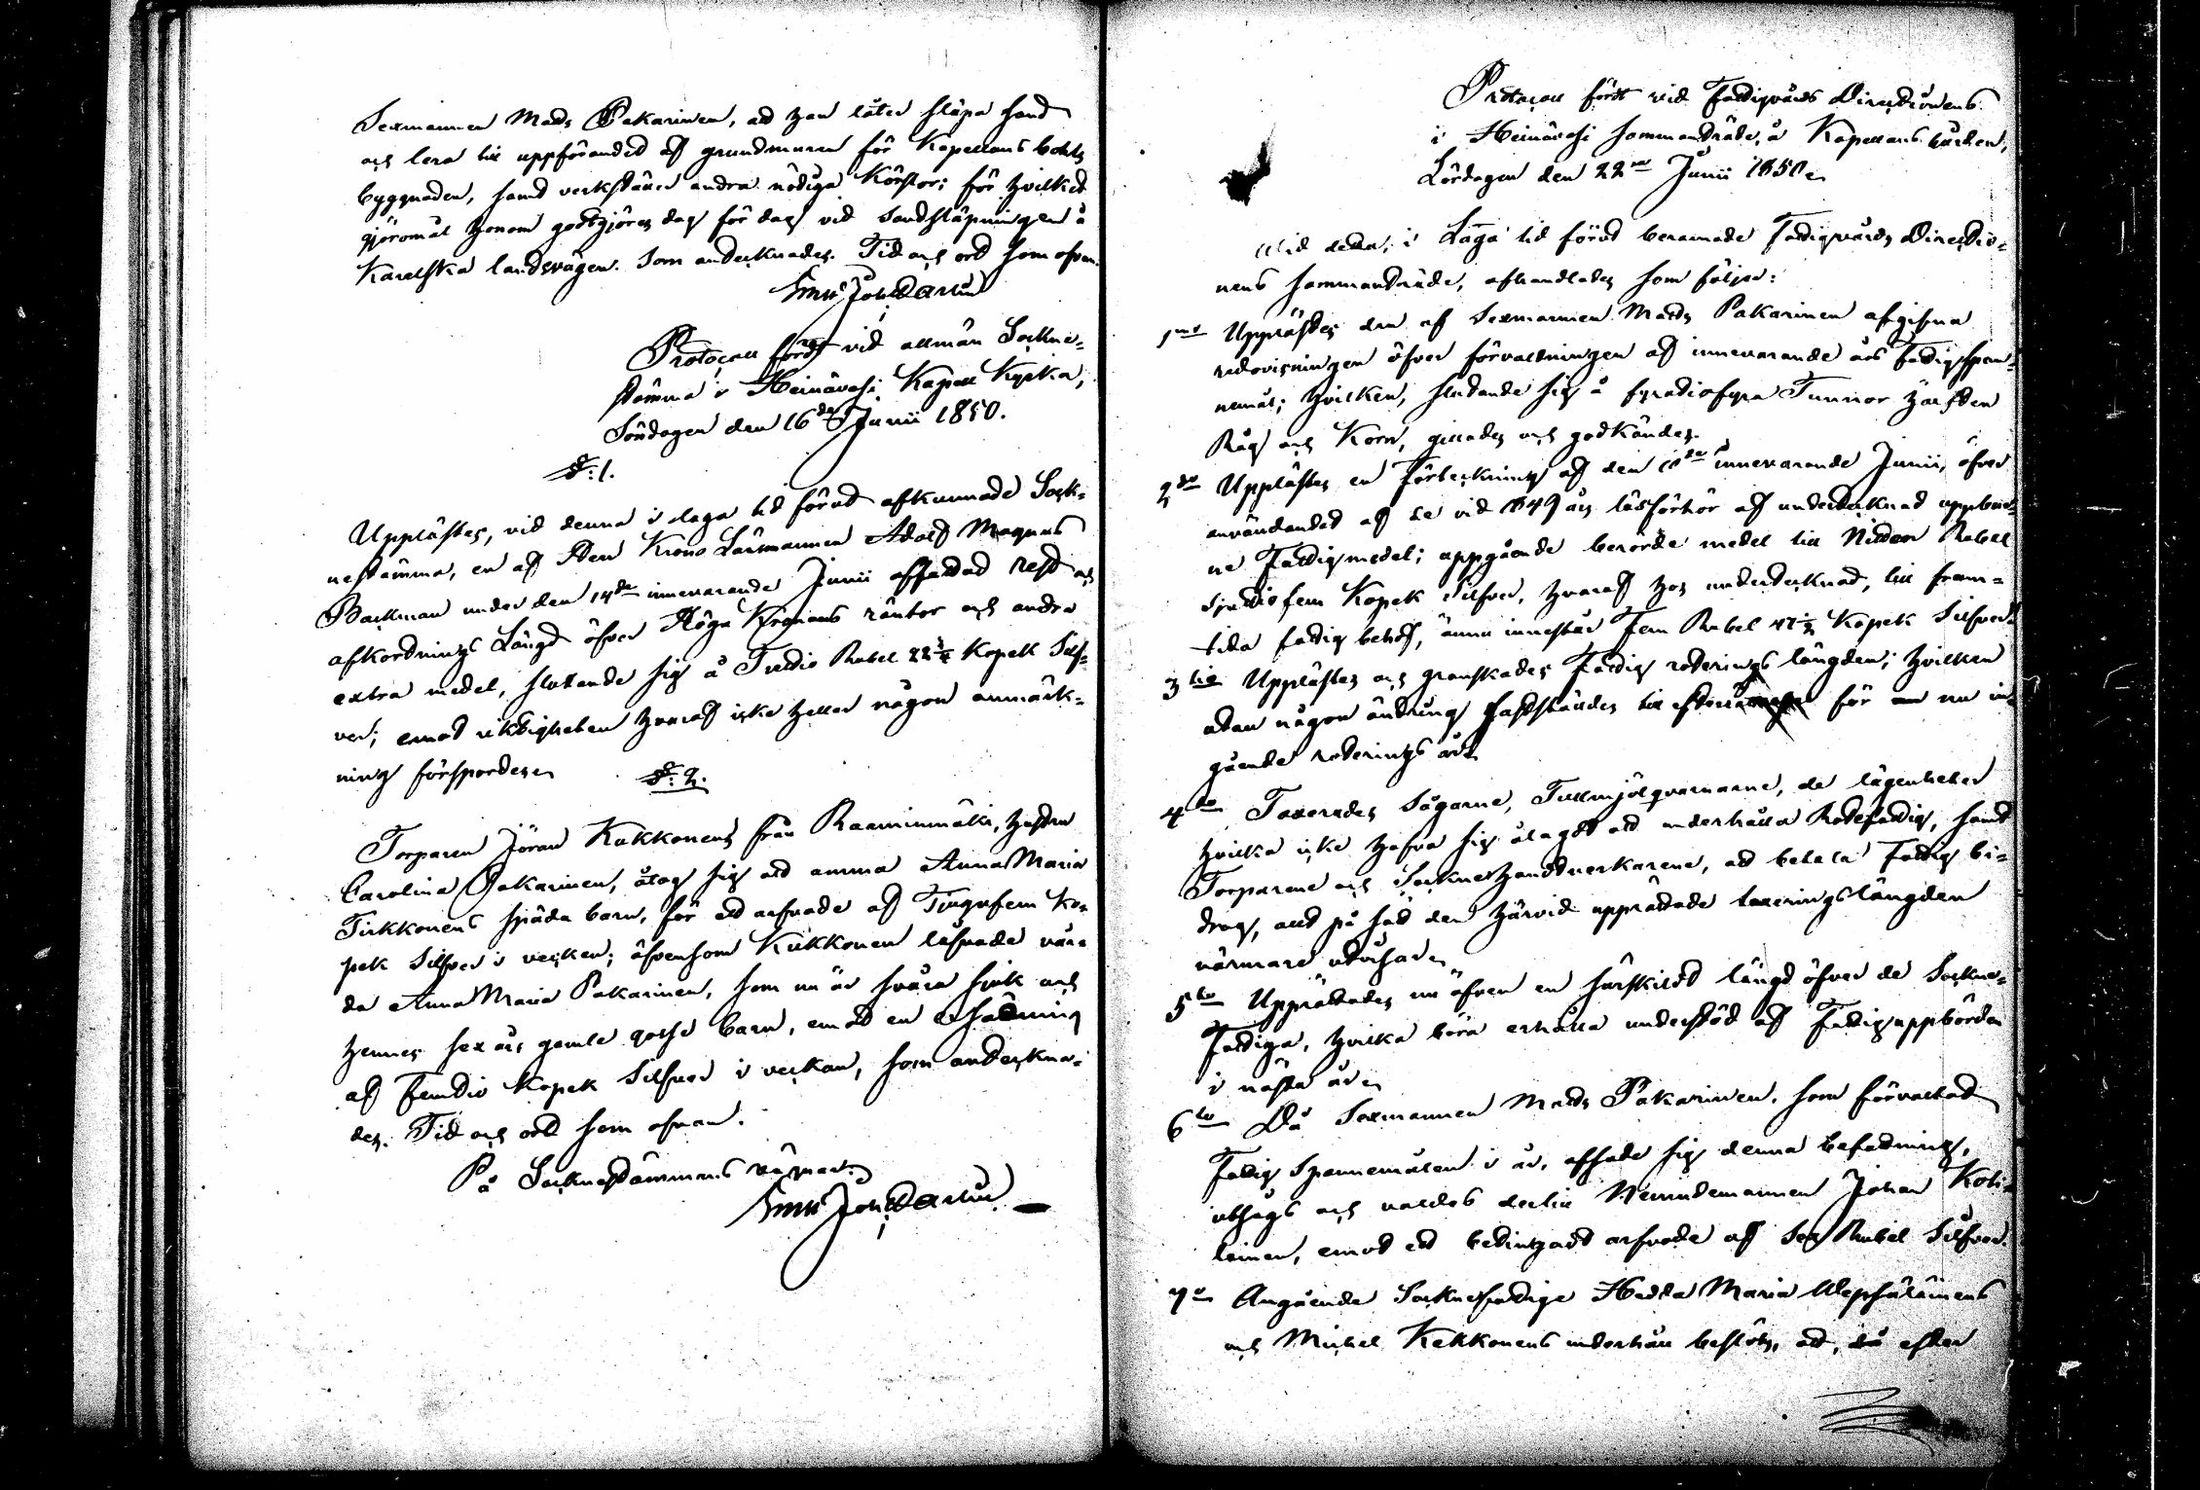 Sexmannen Mats Pakarinen, att han låter släpa sand
och lera till uppförandet af grundmuren för Kapellans bohls
byggnaden, samt verkställer andra nödiga Körslor; för hvilket
göromål honom godtgöres dag för dag vid sandsläpningen å
Karelska landsvägen. Som antecknades. Tid och ort som ofvan.
Protocoll fördt vid allmän Sockne-
stämma i Heinävesi Kapell Kyrka,
Söndagen den 16de Junii 1850.
§: 1.
Upplästes, vid denna i laga tid förut afkunnade Sock-
nestämma, en af Herr Krono Länsmannen Adolf Magnus
Backman under den 14de innevarande Junii affattad rest och
afkortnings Längd öfver Höga Kronans räntor och andra
extra medel, slutande sig å Trettio Rubel 22 1/4 Kopek Silf-
ver; emot riktigheten hvaraf icke heller någon anmärk-
ning försportes.
§: 2.
Torparen Jöran Kukkonens från Raaminmäki, hustru
Carolina Pakarinen, åtog sig att amma Anna Maria
Tirkkonens späda barn, för ett arfvode af Tjugufem Ko-
pek Silfver i veckan; äfvensom Kukkonen lofvade vår-
da Anna Maria Pakarinen, som nu är svåra sjuk och
hennes sex års gamle gosse barn, emot en ersättning
af Femtio Kopek Silfver i veckan, som anteckna-
des. Tid och ort som ofvan.
På Socknestämmans vägnar:
Protocoll fördt vid Fattigvårds Directionens
i Heinävesi sammanträde, å Kapellans bohlen,
Lördagen den 22ra Junii 1850.
Wid detta, i Laga tid förut beramade Fattigvårds Directio-
nens sammanträde, afhandlades som följer:
1mo Upplästes den af Sexmannen Mats Pakarinen afgifna
redovisningen öfver förvaltningen af innevarande års Fattigspan-
nemål; hvilken, slutande sig å fyratiofyra Tunnor hälften
Råg och Korn, gillades och godkändes.
2do Upplästes en Förteckning af den innevarande Junii, öfver
användandet af de vid 1849 års läsförhör af undertecknad uppburn-
ne Fattigmedel; uppgående berörde medel till Nitton Rubel
sjuttiofem Kopek Silfver, hvaraf hos undertecknad, till fram-
tida fattig behof, ännu innestår Fem Rubel 47 1/2 Kopek Silfver.
3tio Upplästes och granskades Fattig roterings längden; hvilken
utan någon ändring fastställdes till för nu in-
gående roterings år.
4to Taxerades Sågarne, Tullmjölqvarnarne, de lägenheter
hvilka icke hafva sig ålagdt att underhålla Rotefattig, samt
Torparene och Sockne handtverkarene, att betala Fattig bi-
drag, allt på sätt den härvid upprättade taxeringslängden
närmare utvisar.
5to Upprättades nu äfven en särskild längd öfver de Sockne-
Fattiga, hvilka böra erhålla understöd af Fattiguppbörden
i nästa år.
6to Då Sexmannen Mats Pakarinen, som förvaltat
Fattig Spannemålen i år, afsade sig denna befattning,
utsågs och valdes dertill Nämndemannen Johan Koti-
lainen, emot ett betingadt arfvode af Sex Rubel Silfver.
7o Angående Socknefattige Hedda Maria Wepsäläinens
och Michel Kekkonens underhåll beslöts, att, då efter